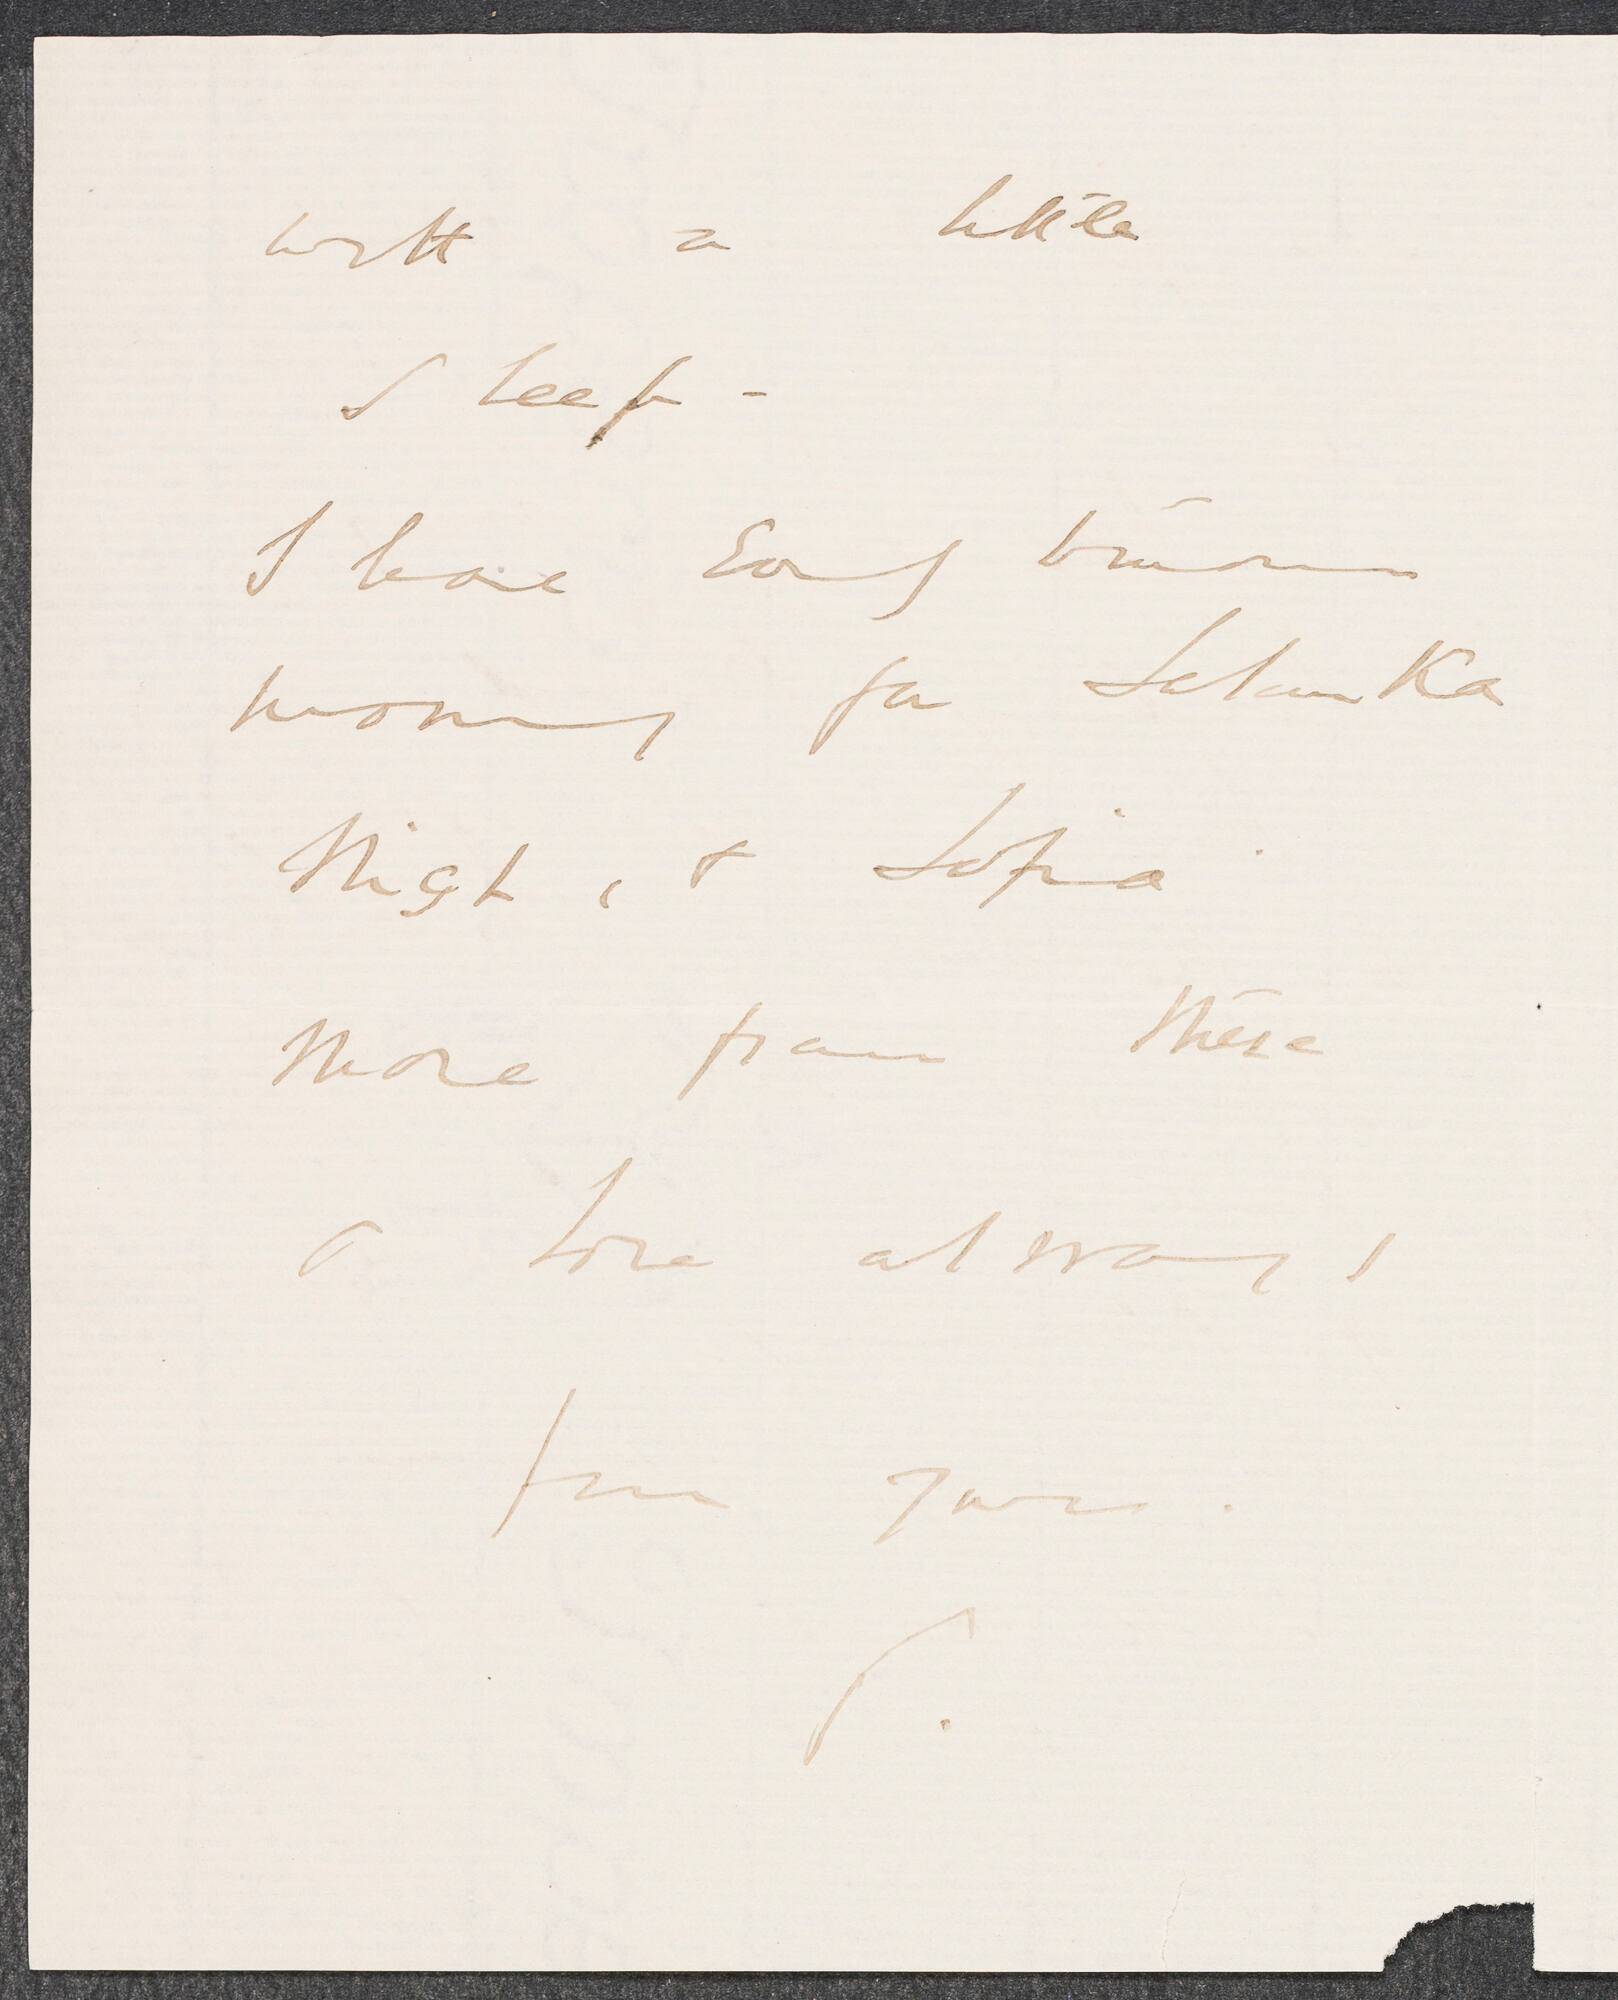 with a little
sleep -
I leave Early tomorrow
morning for Salanka
Night, & Sofia.
More from there
& Love always
from yours.
P.